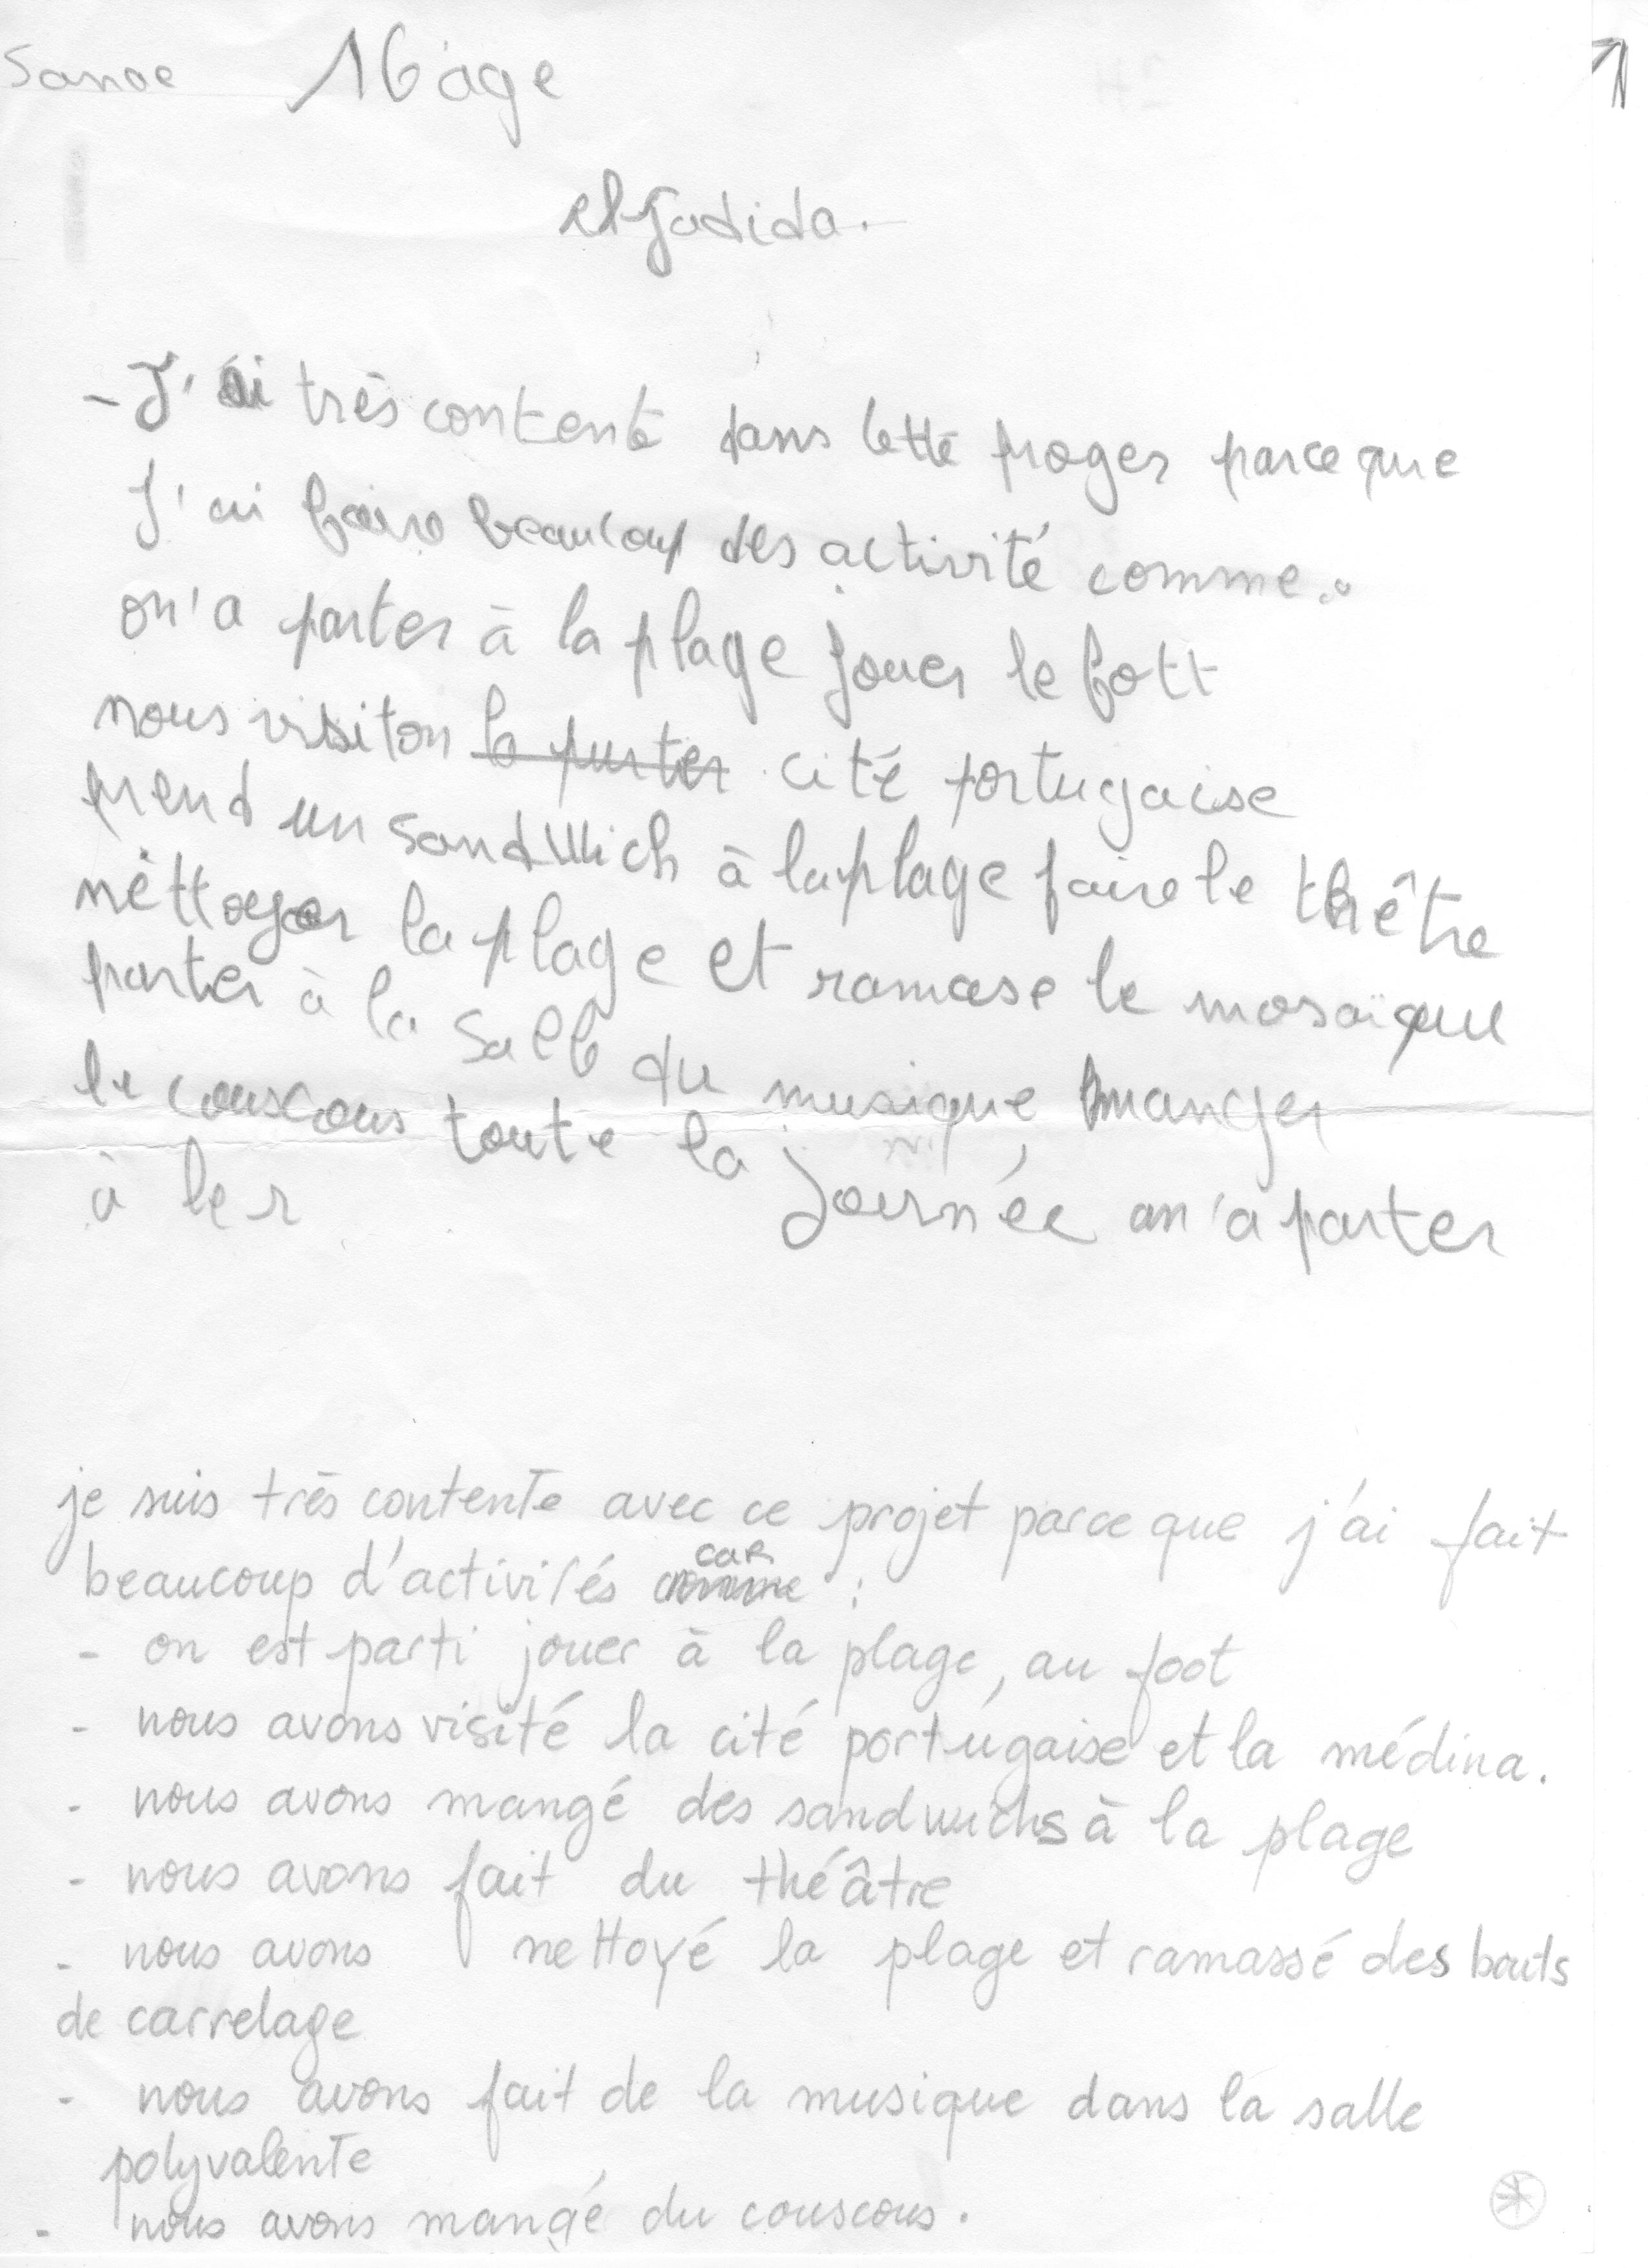 Sanae 16 age
el Jadida.
- J'ai très contente dans cette proger parce que
J'ai faire beaucoup des activité comme :
on'a parter à la plage jouer le fott
nous visiton cité portugaise
prend un sandwich à la plage faire le thêtre
néttoyer la plage et ramase le mosaïque
parter à la salle du musique manger
le couscous toute la journée on'a parter
à le r
je suis très contente avec ce projet parce que j'ai fait
beaucoup d'activités car :
- on est parti jouer à la plage, au foot
- nous avons visité la cité portugaise et la médina.
- nous avons mangé des sandwichs à la plage
- nous avons fait du théâtre
- nous avons nettoyé la plage et ramassé des bouts
de carrelage
- nous avons fait de la musique dans la salle
polyvalente
- nous avons mangé du couscous.